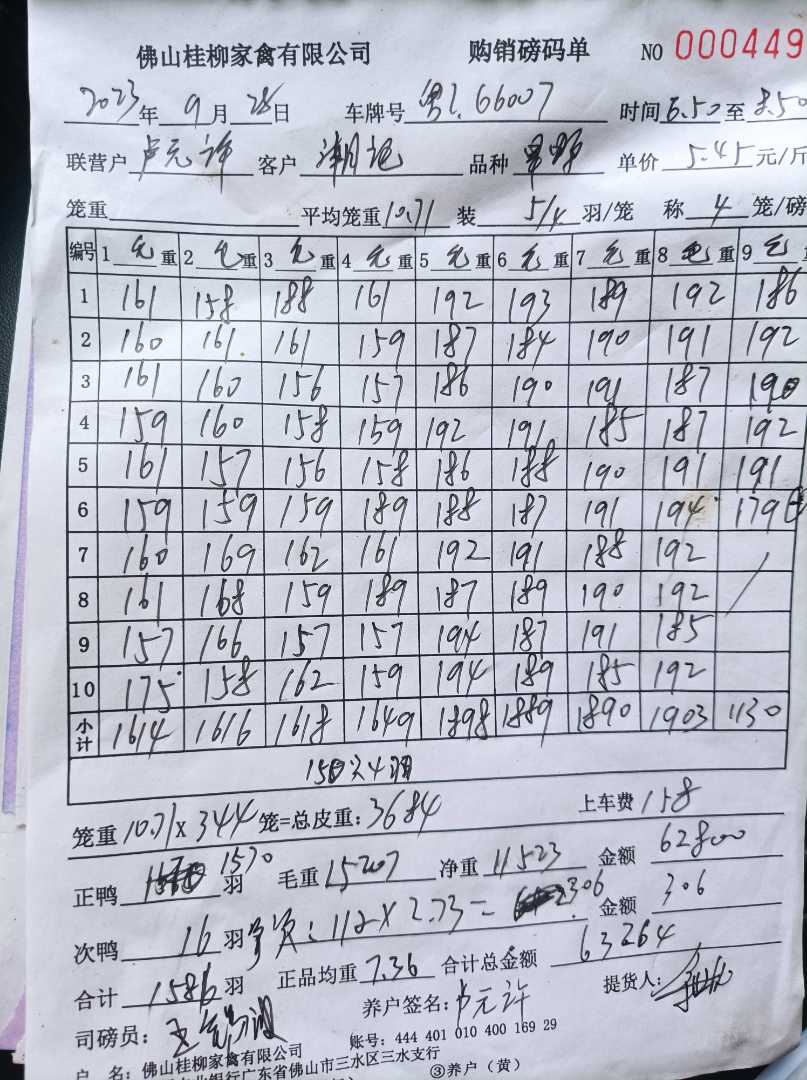 佛山桂柳家禽有限公司 购销磅码单 NO 000449
2023年 9月 28日 车牌号 粤L.66007 时间 6.50 至 8.50
联营户 卢元许 客户 品种 单价 5.45 元/斤
笼重 平均笼重 10.71 装 5/4 羽/笼 称 4 笼/磅
编号 1 毛 重 2 毛 重 3 毛 重 4 毛 重 5 毛 重 6 毛 重 7 毛 重 8 毛 重 9 毛
1 161 158 188 161 192 193 189 192 186
2 160 161 161 159 187 184 190 191 192
3 161 160 156 157 186 190 191 187 190
4 159 160 158 159 192 191 185 187 192
5 161 157 156 158 186 188 190 191 191
6 159 159 159 189 188 187 191 194 179
7 160 169 162 161 192 191 188 192
8 161 168 159 189 187 189 190 192
9 157 166 157 157 194 187 191 185
10 175 158 162 159 194 189 185 192
小计 1614 1616 1618 1649 1898 1889 1890 1903 1130
笼重 10.71 x 344 笼=总皮重: 3684 上车费 158
正鸭 1570 羽 毛重 15207 净重 11523 金额 62800
次鸭 16 羽 112 x 2.73 = 306 金额 306
合计 1586 羽 正品均重 7.36 合计总金额 63264
司磅员: 养户签名: 卢元许 提货人:
户 名: 佛山桂柳家禽有限公司 账号: 444 401 010 400 169 29
银行广东省佛山市三水区三水支行 ③养户（黄）